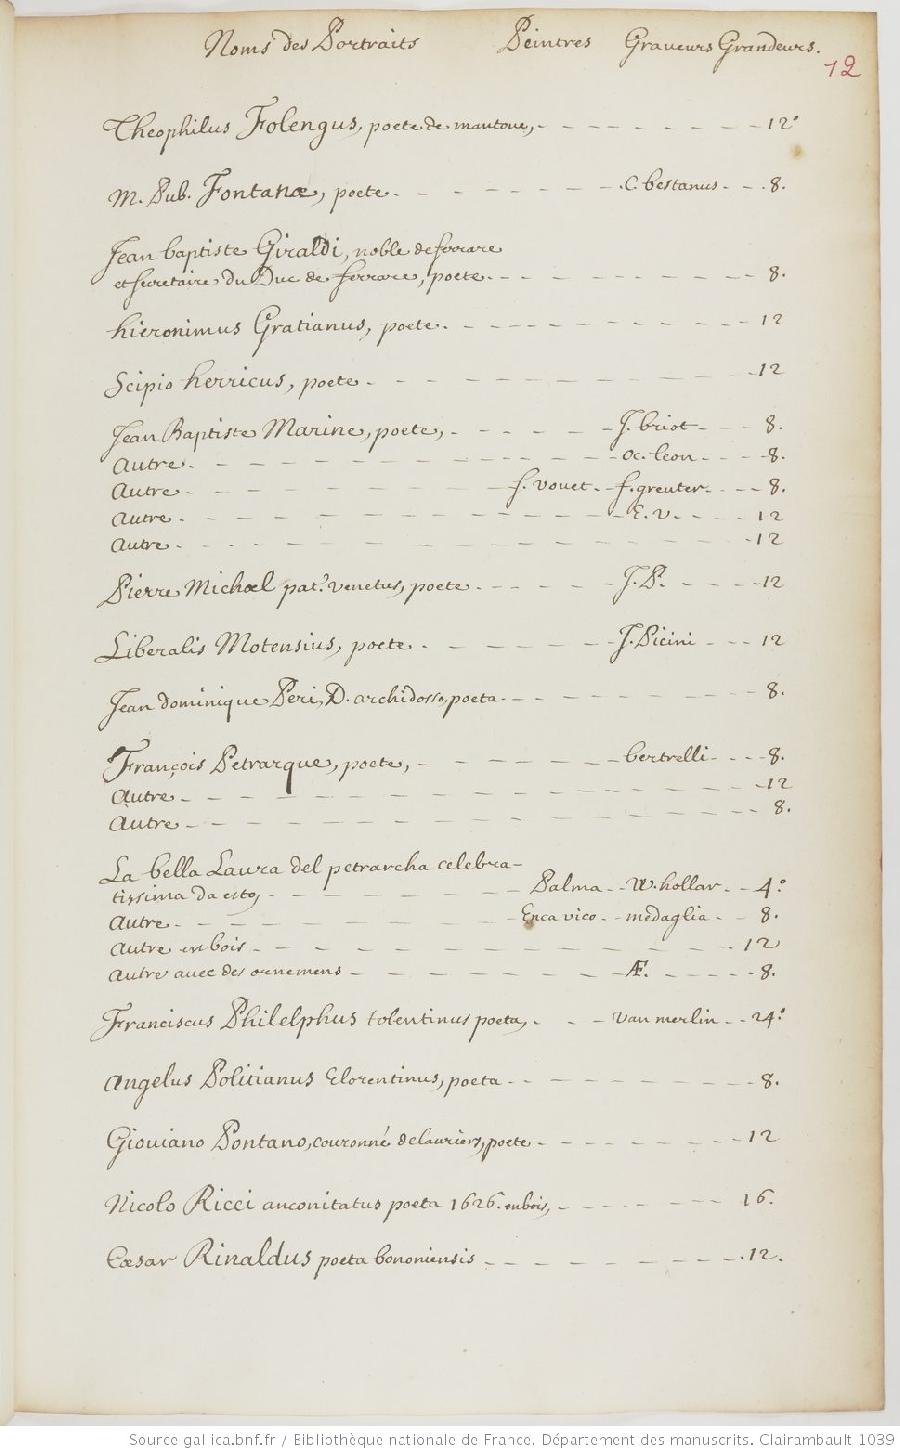 Noms des Portraits Peintres Graveurs Grandeurs.
12
Theophilus Folengus, poete de mantoue, 12°
M. Pub. Fontanæ, poete. C. bestanus 8.
Jean baptiste Giraldi, noble de ferrare
et secretaire du Duc de ferrare, poete. 8.
hieronimus Gratianus, poete. 12
Scipio herricus, poete 12
Jean Baptiste Marine, poete, J. briot 8.
Autre. oc. leon 8.
Autre f. vouet. f. greuter. 8.
Autre. E. V. 12
Autre. 12
Pierre Michael pat. venetus, poete J. P. 12
Liberalis Motensius, poete. J. Picini 12
Jean dominique Peri, D. archidosso, poeta 8.
François Petrarque, poete, bertrelli 8.
Autre 12
Autre 8.
La bella Laura del petrarcha celebra-
tissima da esto, Palma W. hollar 4°
Autre Enea vico medaglia 8.
Autre en bois 12
Autre avec des ornemens Æ. 8.
Franciscus Philelphus tolentinus poeta, van merlin 24°
Angelus Politianus Florentinus, poeta 8.
Giouiano Pontano, couronné de lauriers, poete 12
Nicolo Ricci anconitatus poeta 1626. en bois, 16.
Cæsar Rinaldus poeta bononiensis 12.
Source gallica.bnf.fr / Bibliothèque nationale de France. Département des manuscrits. Clairambault 1039